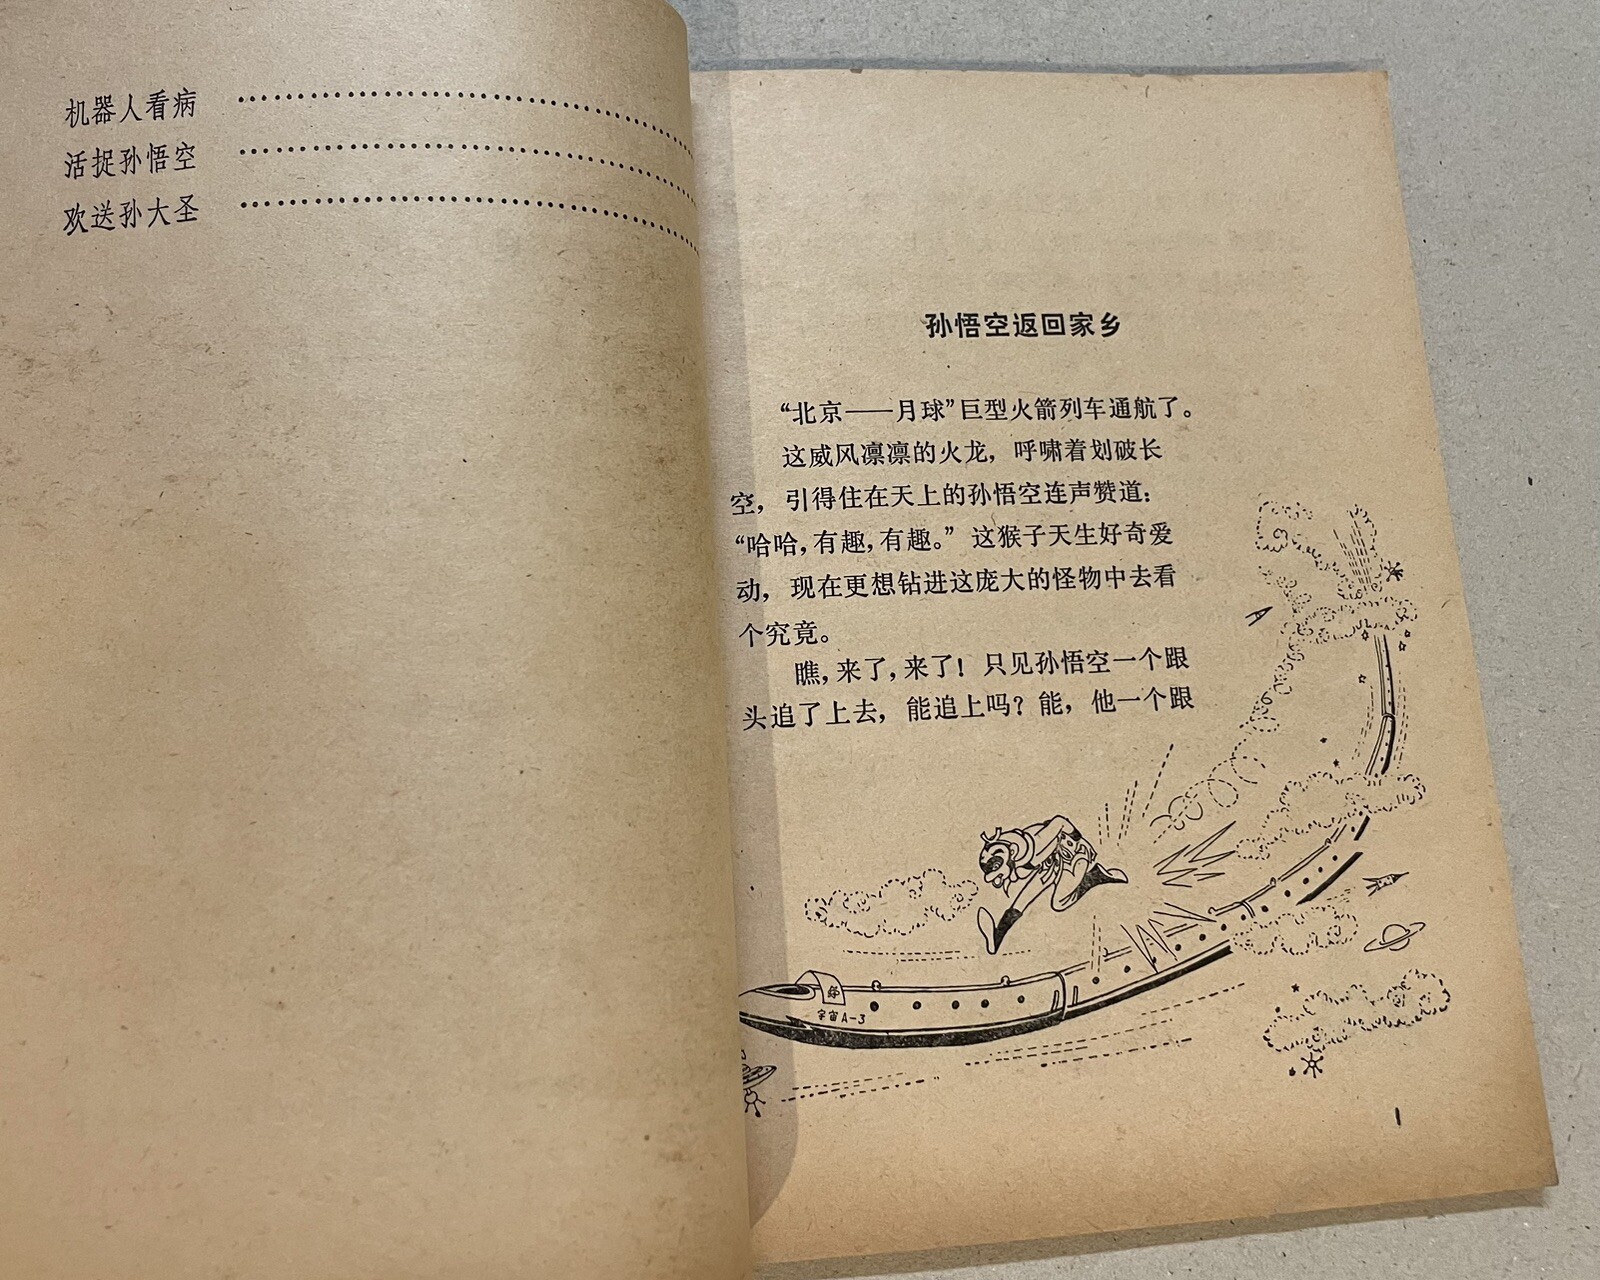 机器人看病
活捉孙悟空
欢送孙大圣
孙悟空返回家乡
“北京——月球”巨型火箭列车通航了。
这威风凛凛的火龙，呼啸着划破长
空，引得住在天上的孙悟空连声赞道：
“哈哈，有趣，有趣。”这猴子天生好奇爱
动，现在更想钻进这庞大的怪物中去看
个究竟。
瞧，来了，来了！只见孙悟空一个跟
头追了上去，能追上吗？能，他一个跟
宇宙A-3
1